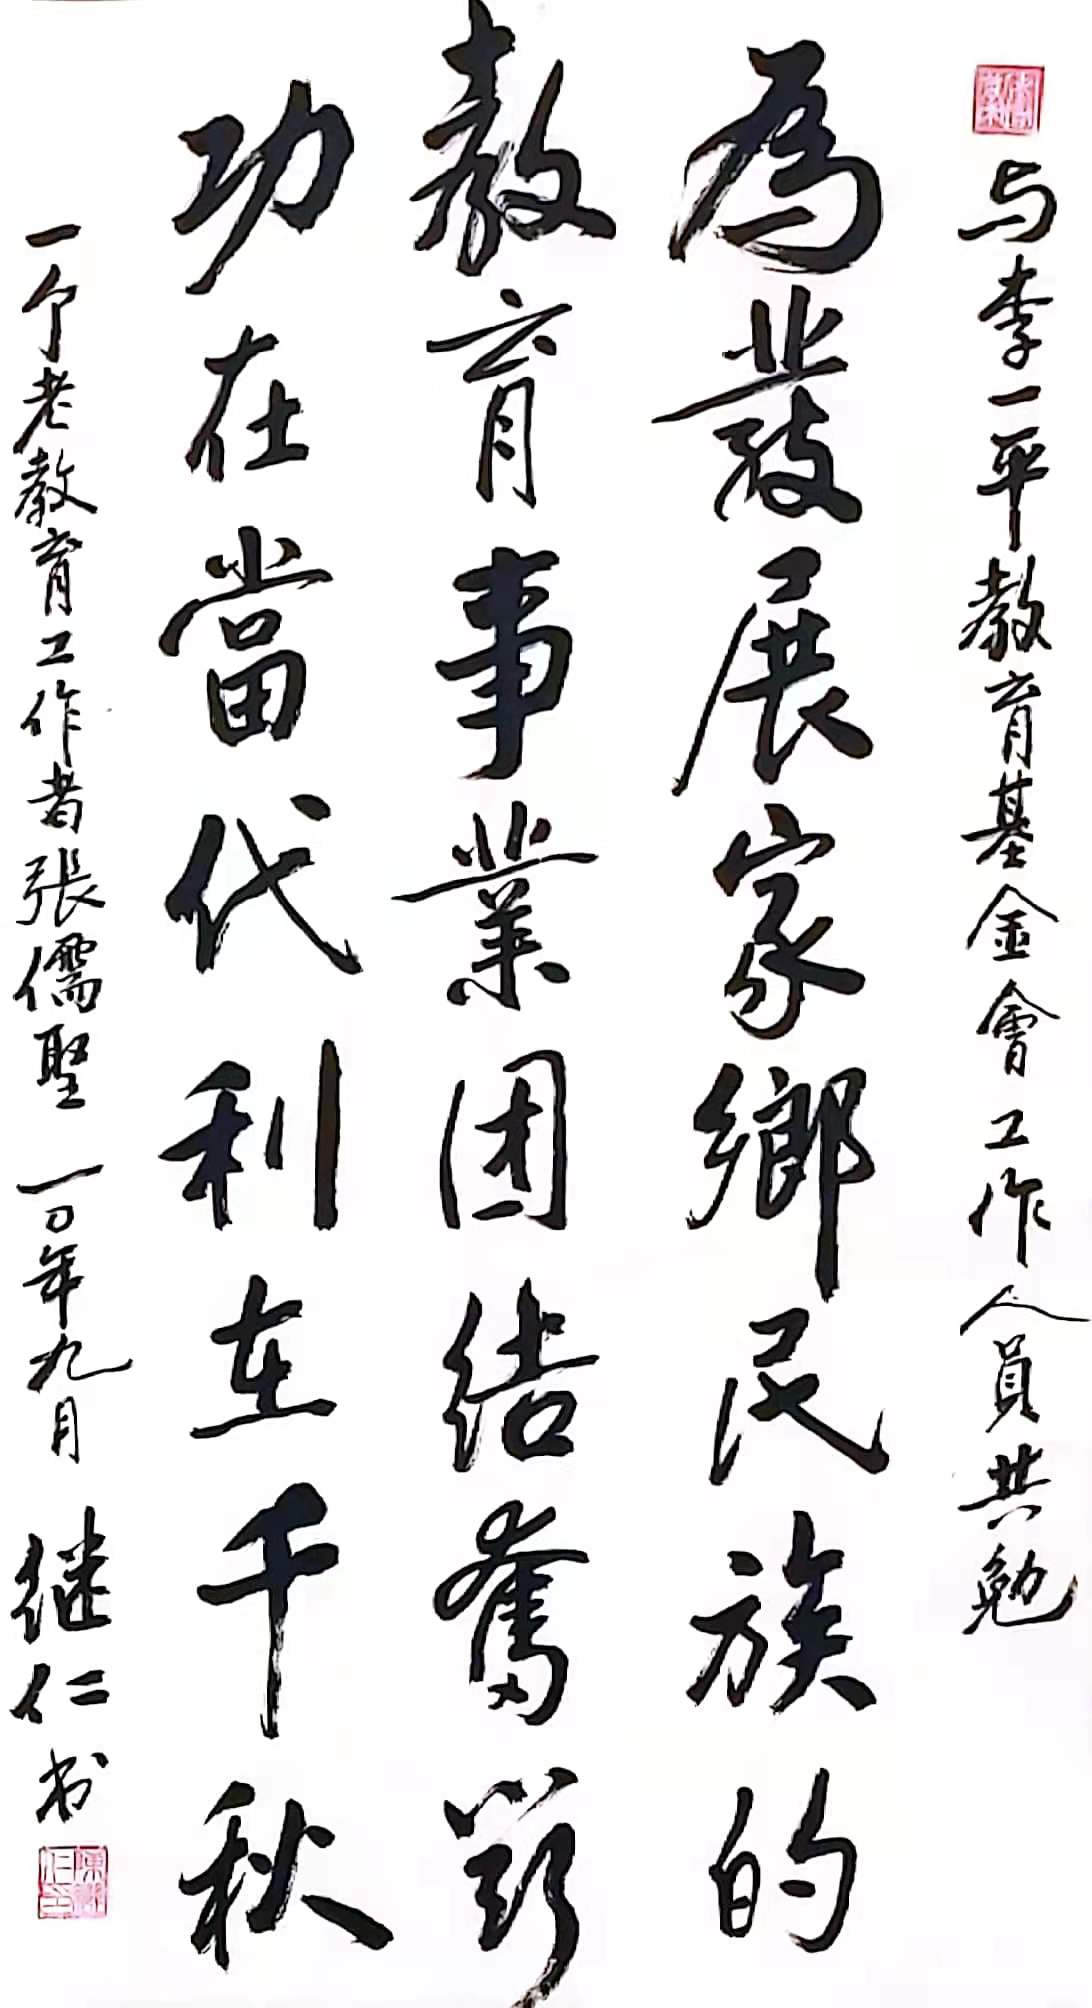 与李一平教育基金會工作人員共勉
為發展家鄉民族的
教育事業团结奮鬥
功在當代利在千秋
一个老教育工作者張儒聖 一〇年九月 继仁书